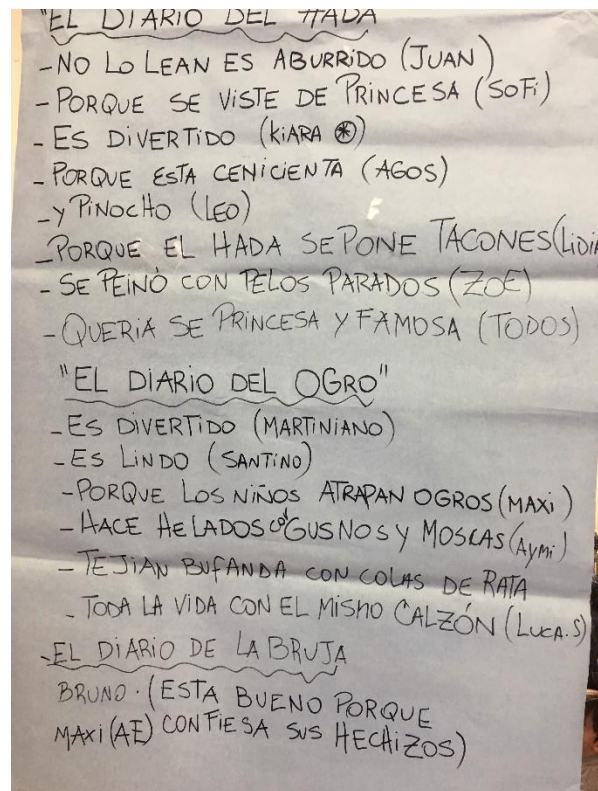 "EL DIARIO DEL HADA
-NO LO LEAN ES ABURRIDO (JUAN)
- PORQUE SE VISTE DE PRINCESA (SOFI)
- ES DIVERTIDO (KIARA)
- PORQUE ESTA CENICIENTA (AGOS)
- Y PINOCHO (LEO)
- PORQUE EL HADA SE PONE TACONES (LIDIA
- SE PEINÓ CON PELOS PARADOS (ZOE)
- QUERIA SE PRINCESA Y FAMOSA (TODOS)
"EL DIARIO DEL OGRO"
- ES DIVERTIDO (MARTINIANO)
- ES LINDO (SANTINO)
- PORQUE LOS NIÑOS ATRAPAN OGROS (MAXI)
- HACE HELADOS CON GUSNOS Y MOSCAS (AYMI)
- TEJIAN BUFANDA CON COLAS DE RATA
- TODA LA VIDA CON EL MISMO CALZÓN (LUCA.S)
- EL DIARIO DE LA BRUJA
BRUNO. (ESTA BUENO PORQUE
MAXI (AE) CONFIESA SUS HECHIZOS)